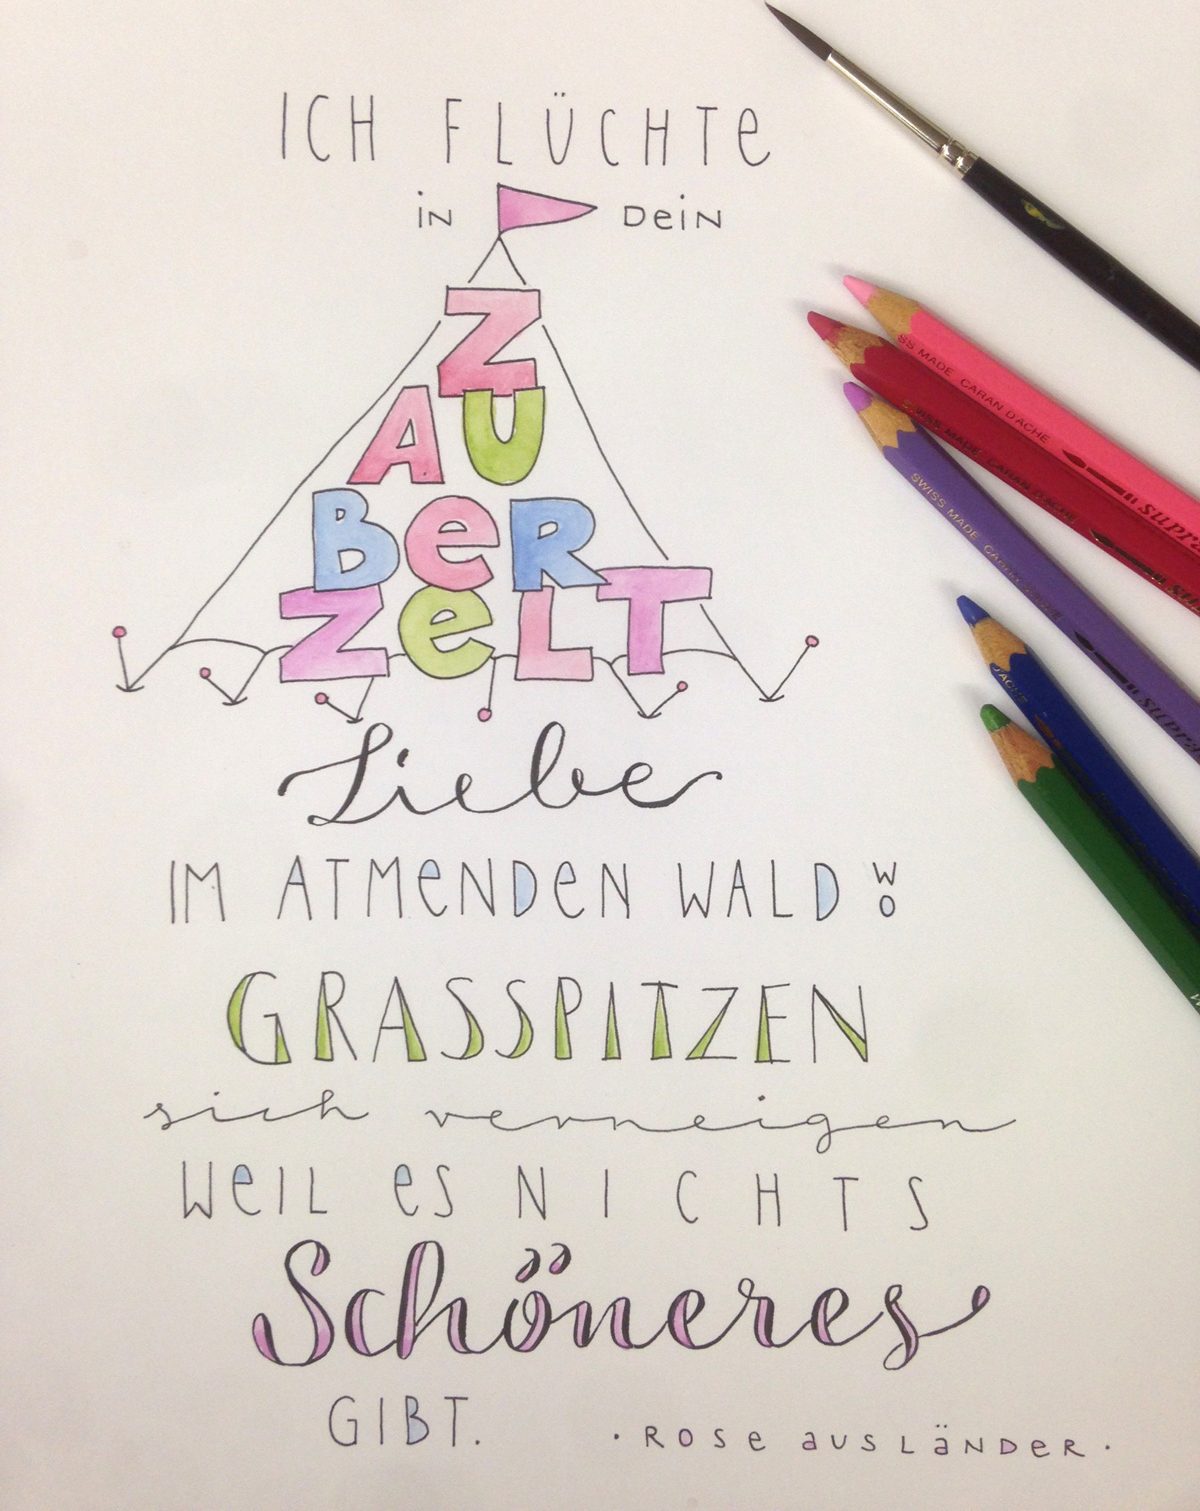 ICH FLÜCHTE
IN DEIN
ZAUBERZELT
Liebe
IM ATMENDEN WALD WO
GRASSPITZEN
sich verneigen
WEIL ES NICHTS
Schöneres
GIBT.
· ROSE AUSLÄNDER ·
SS MADE CARAN D'ACHE
SWISS MADE CARAN D'ACHE
SWISS MADE CARAN D'ACHE
D'ACHE